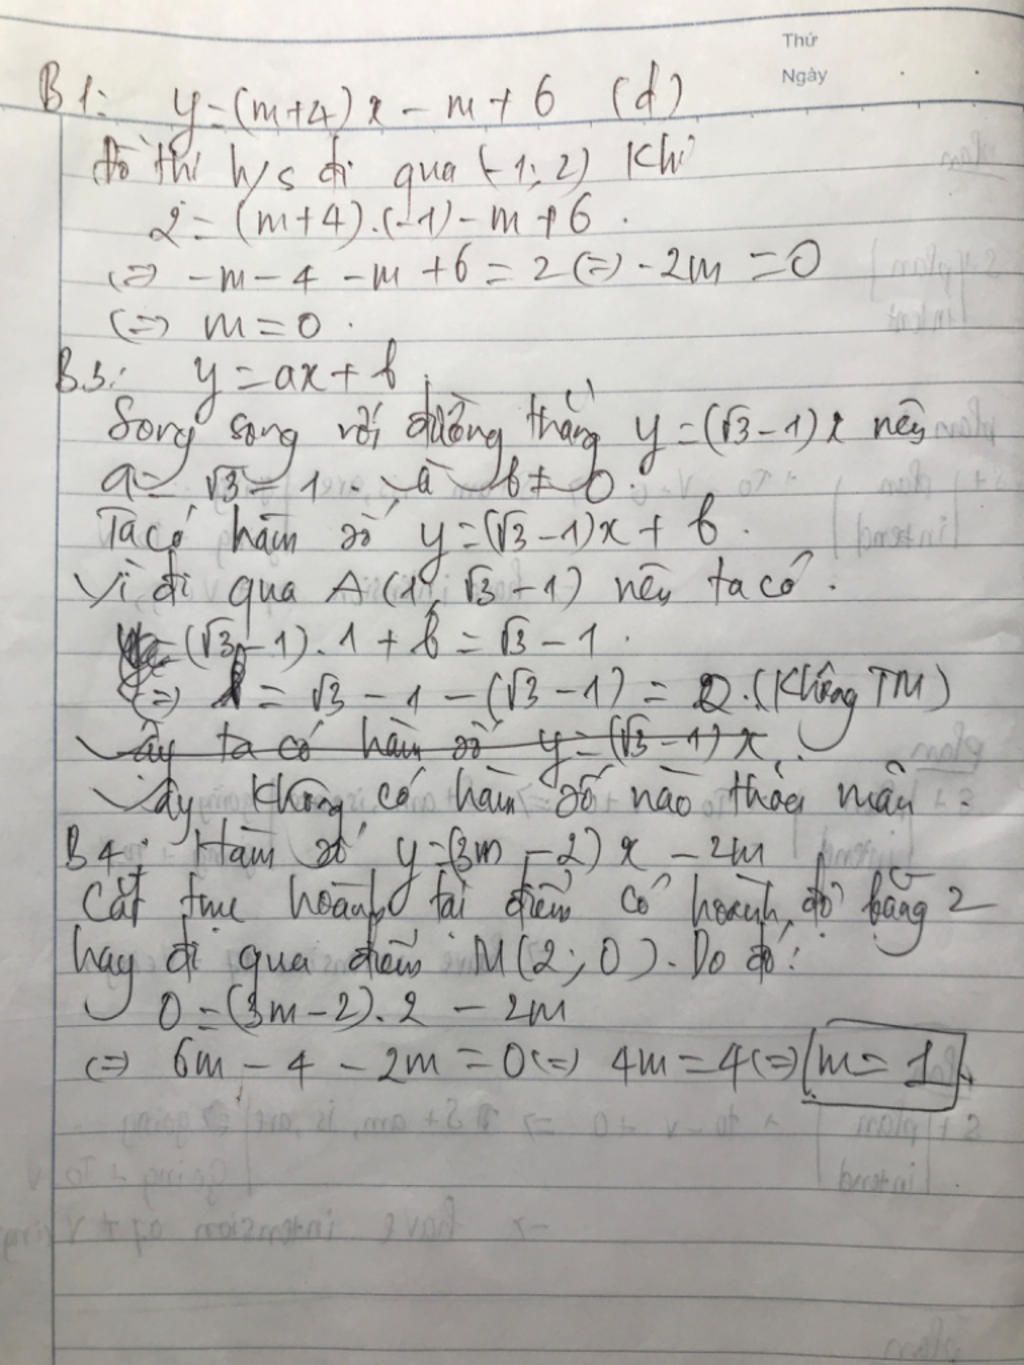 Thứ
Ngày
B1: y=(m+4)x - m + 6 (d)
Đồ thị h/s đi qua (-1; 2) khi
2 = (m+4).(-1) - m + 6.
(=) -m - 4 - m + 6 = 2 (=) -2m = 0
(=) m = 0.
B3: y = ax + b
Song song với đường thẳng y = (√3-1)x nên
a = √3 - 1. và b ≠ 0.
Ta có hàm số y = (√3-1)x + b.
Vì đi qua A(1, √3-1) nên ta có.
= (√3-1).1 + b = √3 - 1.
(=) b = √3 - 1 - (√3-1) = 0. (Không TM)
Vậy ta có hàm số y = (√3-1)x.
Vậy không có hàm số nào thỏa mãn.
B4: Hàm số y=(3m-2)x - 2m
Cắt trục hoành tại điểm có hoành độ bằng 2
hay đi qua điểm M(2; 0). Do đó:
0 = (3m-2).2 - 2m
(=) 6m - 4 - 2m = 0 (=) 4m = 4 (=) m = 1